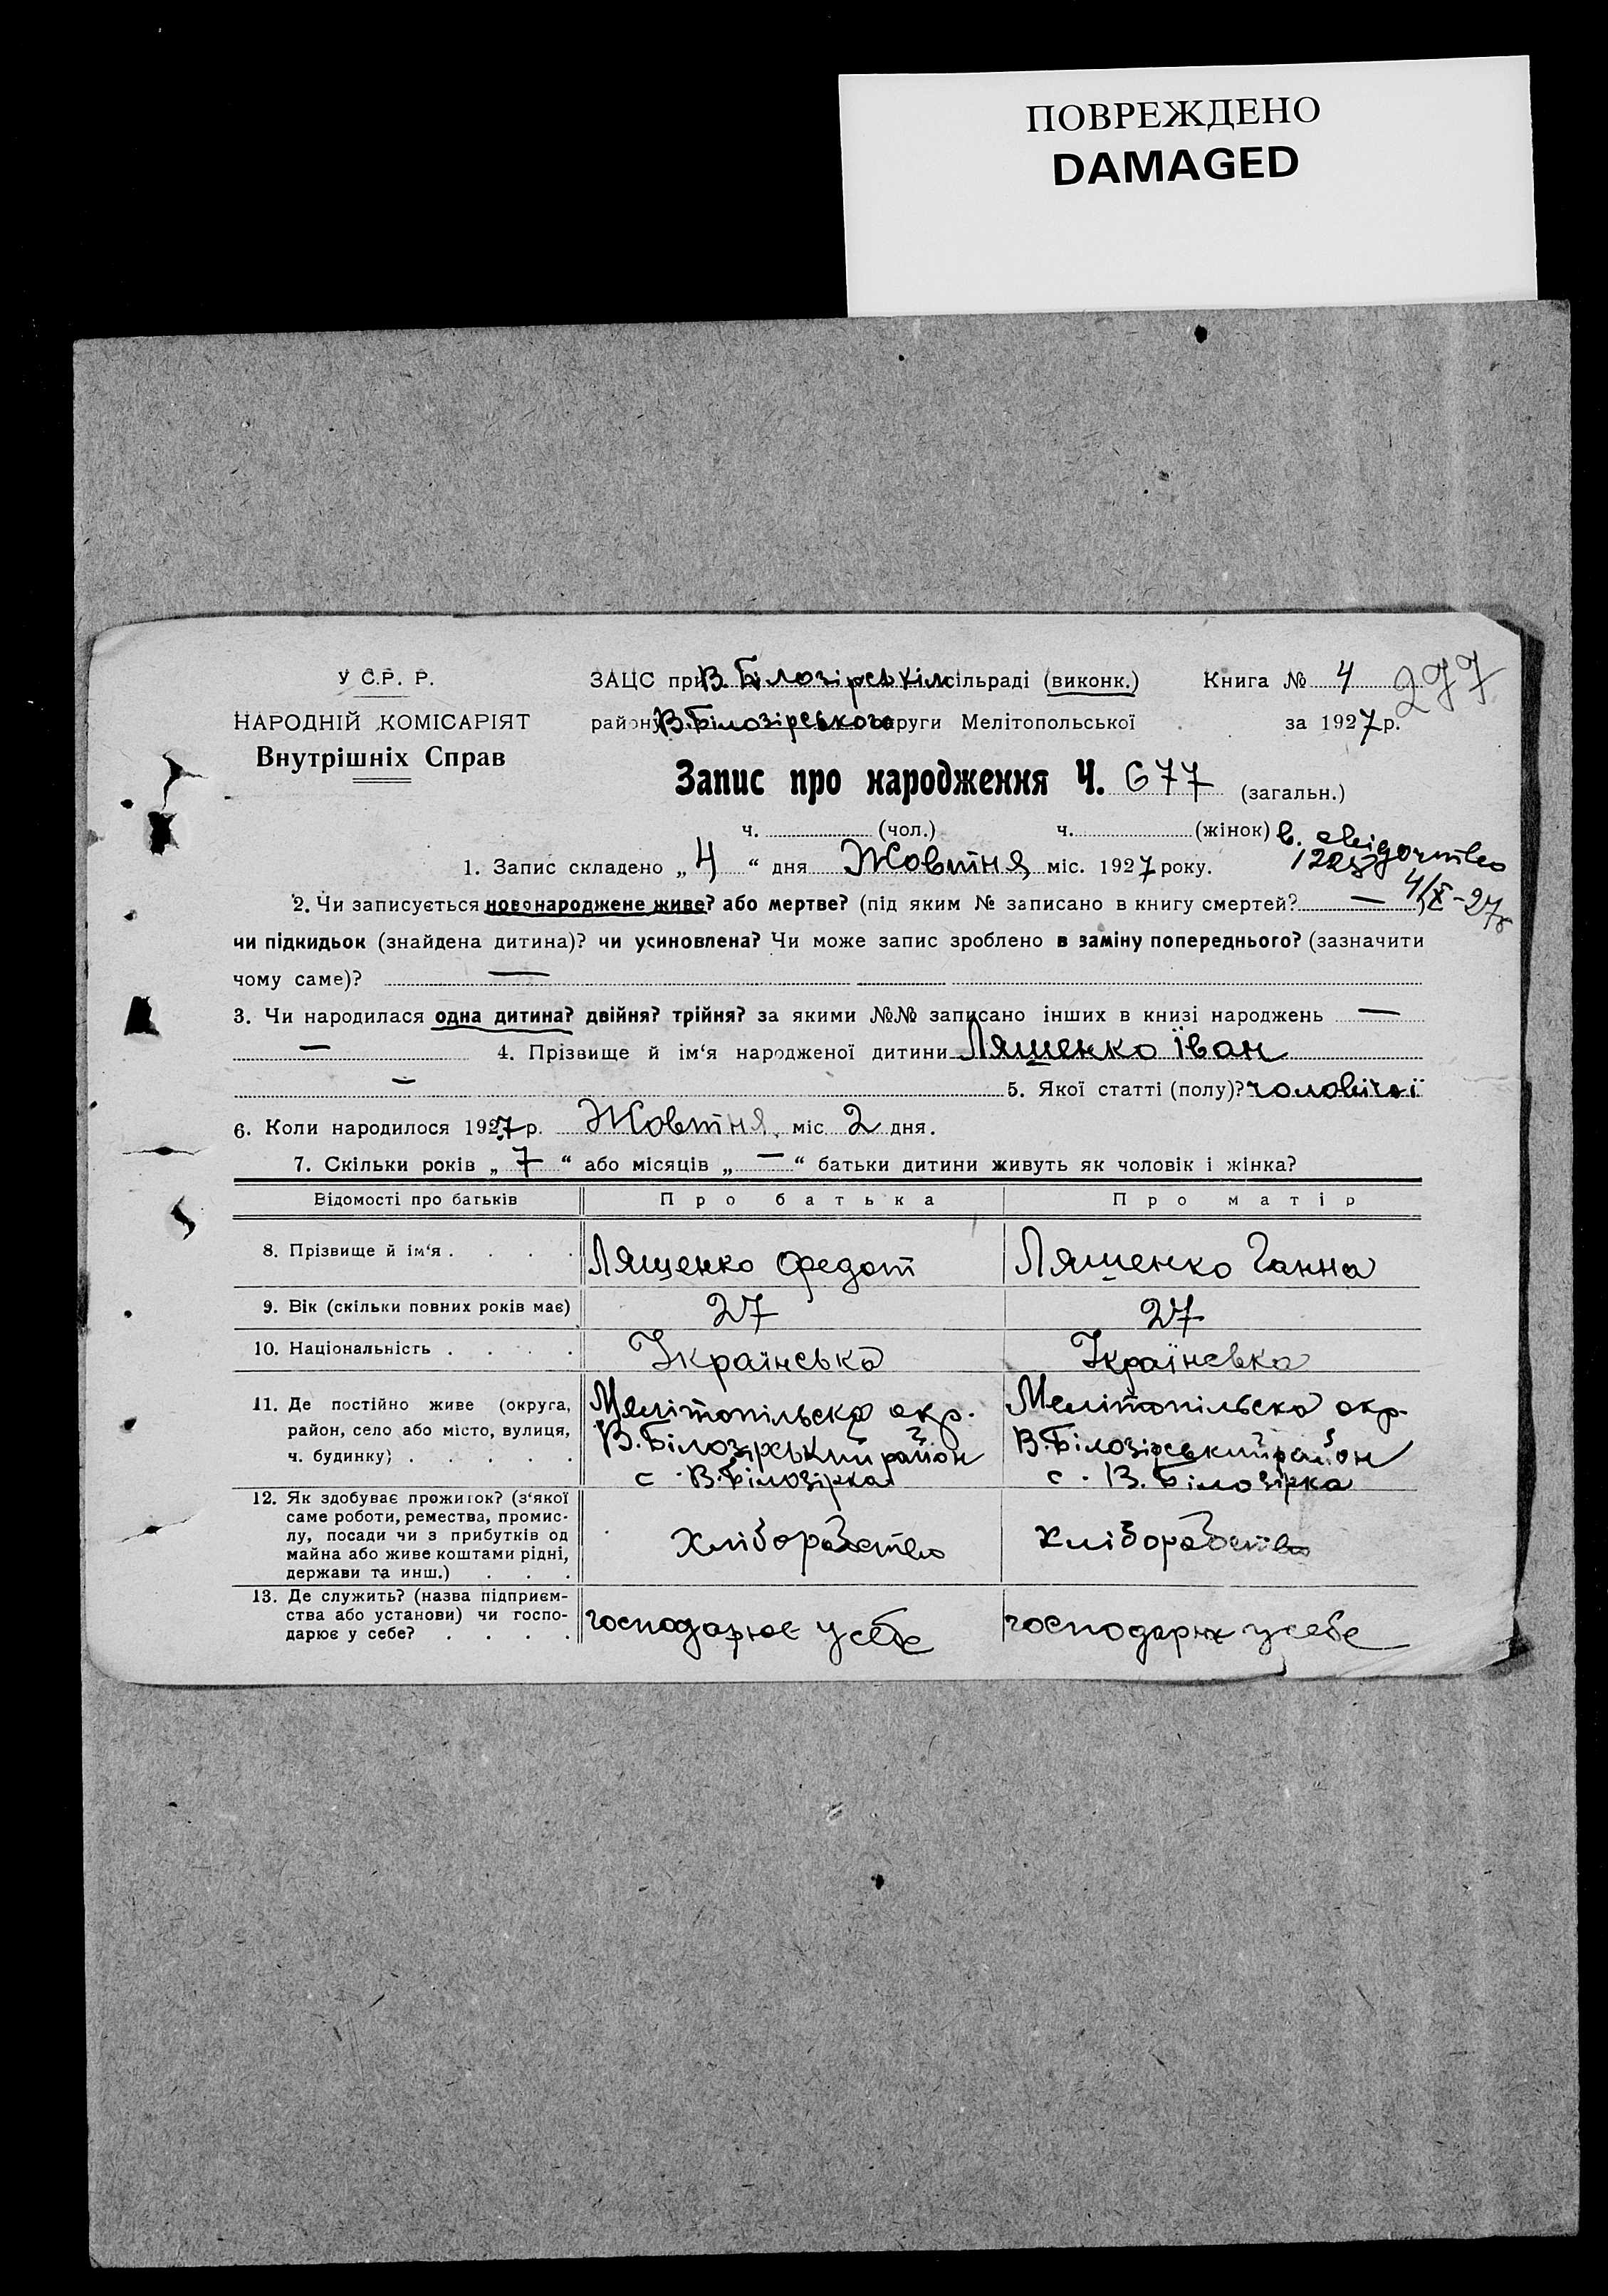 ПОВРЕЖДЕНО
DAMAGED
У С.Р. Р.
НАРОДНІЙ КОМІСАРІЯТ
Внутрішніх Справ
ЗАЦС при В. Білозірськім сільраді (виконк.)
Книга № 4
277
району В. Білозірського округи Мелітопольської
за 1927 р.
Запис про народження Ч. 677 (загальн.)
ч. (чол.) ч. (жінок)
в. свідоцтво
1. Запис складено „ 4 “ дня Жовтня міс. 1927 року.
4/X-27р
2. Чи записується новонароджене живе? або мертве? (під яким № записано в книгу смертей? — )
чи підкидьок (знайдена дитина)? чи усиновлена? Чи може запис зроблено в заміну попереднього? (зазначити
чому саме)? —
3. Чи народилася одна дитина? двійня? трійня? за якими №№ записано інших в книзі народжень —
— 4. Прізвище й ім‘я народженої дитини Ляшенко Іван
— 5. Якої статті (полу)? чоловічої
6. Коли народилося 1927 р. Жовтня міс. 2 дня.
7. Скільки років „ 7 “ або місяців „ — “ батьки дитини живуть як чоловік і жінка?
Відомості про батьків Про батька Про матір
8. Прізвище й ім‘я . . . . Лященко Федот Ляшенко Ганна
9. Вік (скільки повних років має) 27 27
10. Національність . . . . Українська Українська
11. Де постійно живе (округа,
район, село або місто, вулиця,
ч. будинку) . . . . .
Мелітопільска окр.
В. Білозірський район
с. В. Білозірка
Мелітопільска окр.
В. Білозірський район
с. В. Білозірка
12. Як здобуває прожиток? (з‘якої
саме роботи, ремества, промис-
лу, посади чи з прибутків од
майна або живе коштами рідні,
держави та инш.) . . .
Хліборобство
Хліборобство
13. Де служить? (назва підприєм-
ства або установи) чи госпо-
дарює у себе? . . . .
господарює у себе
господарює у себе